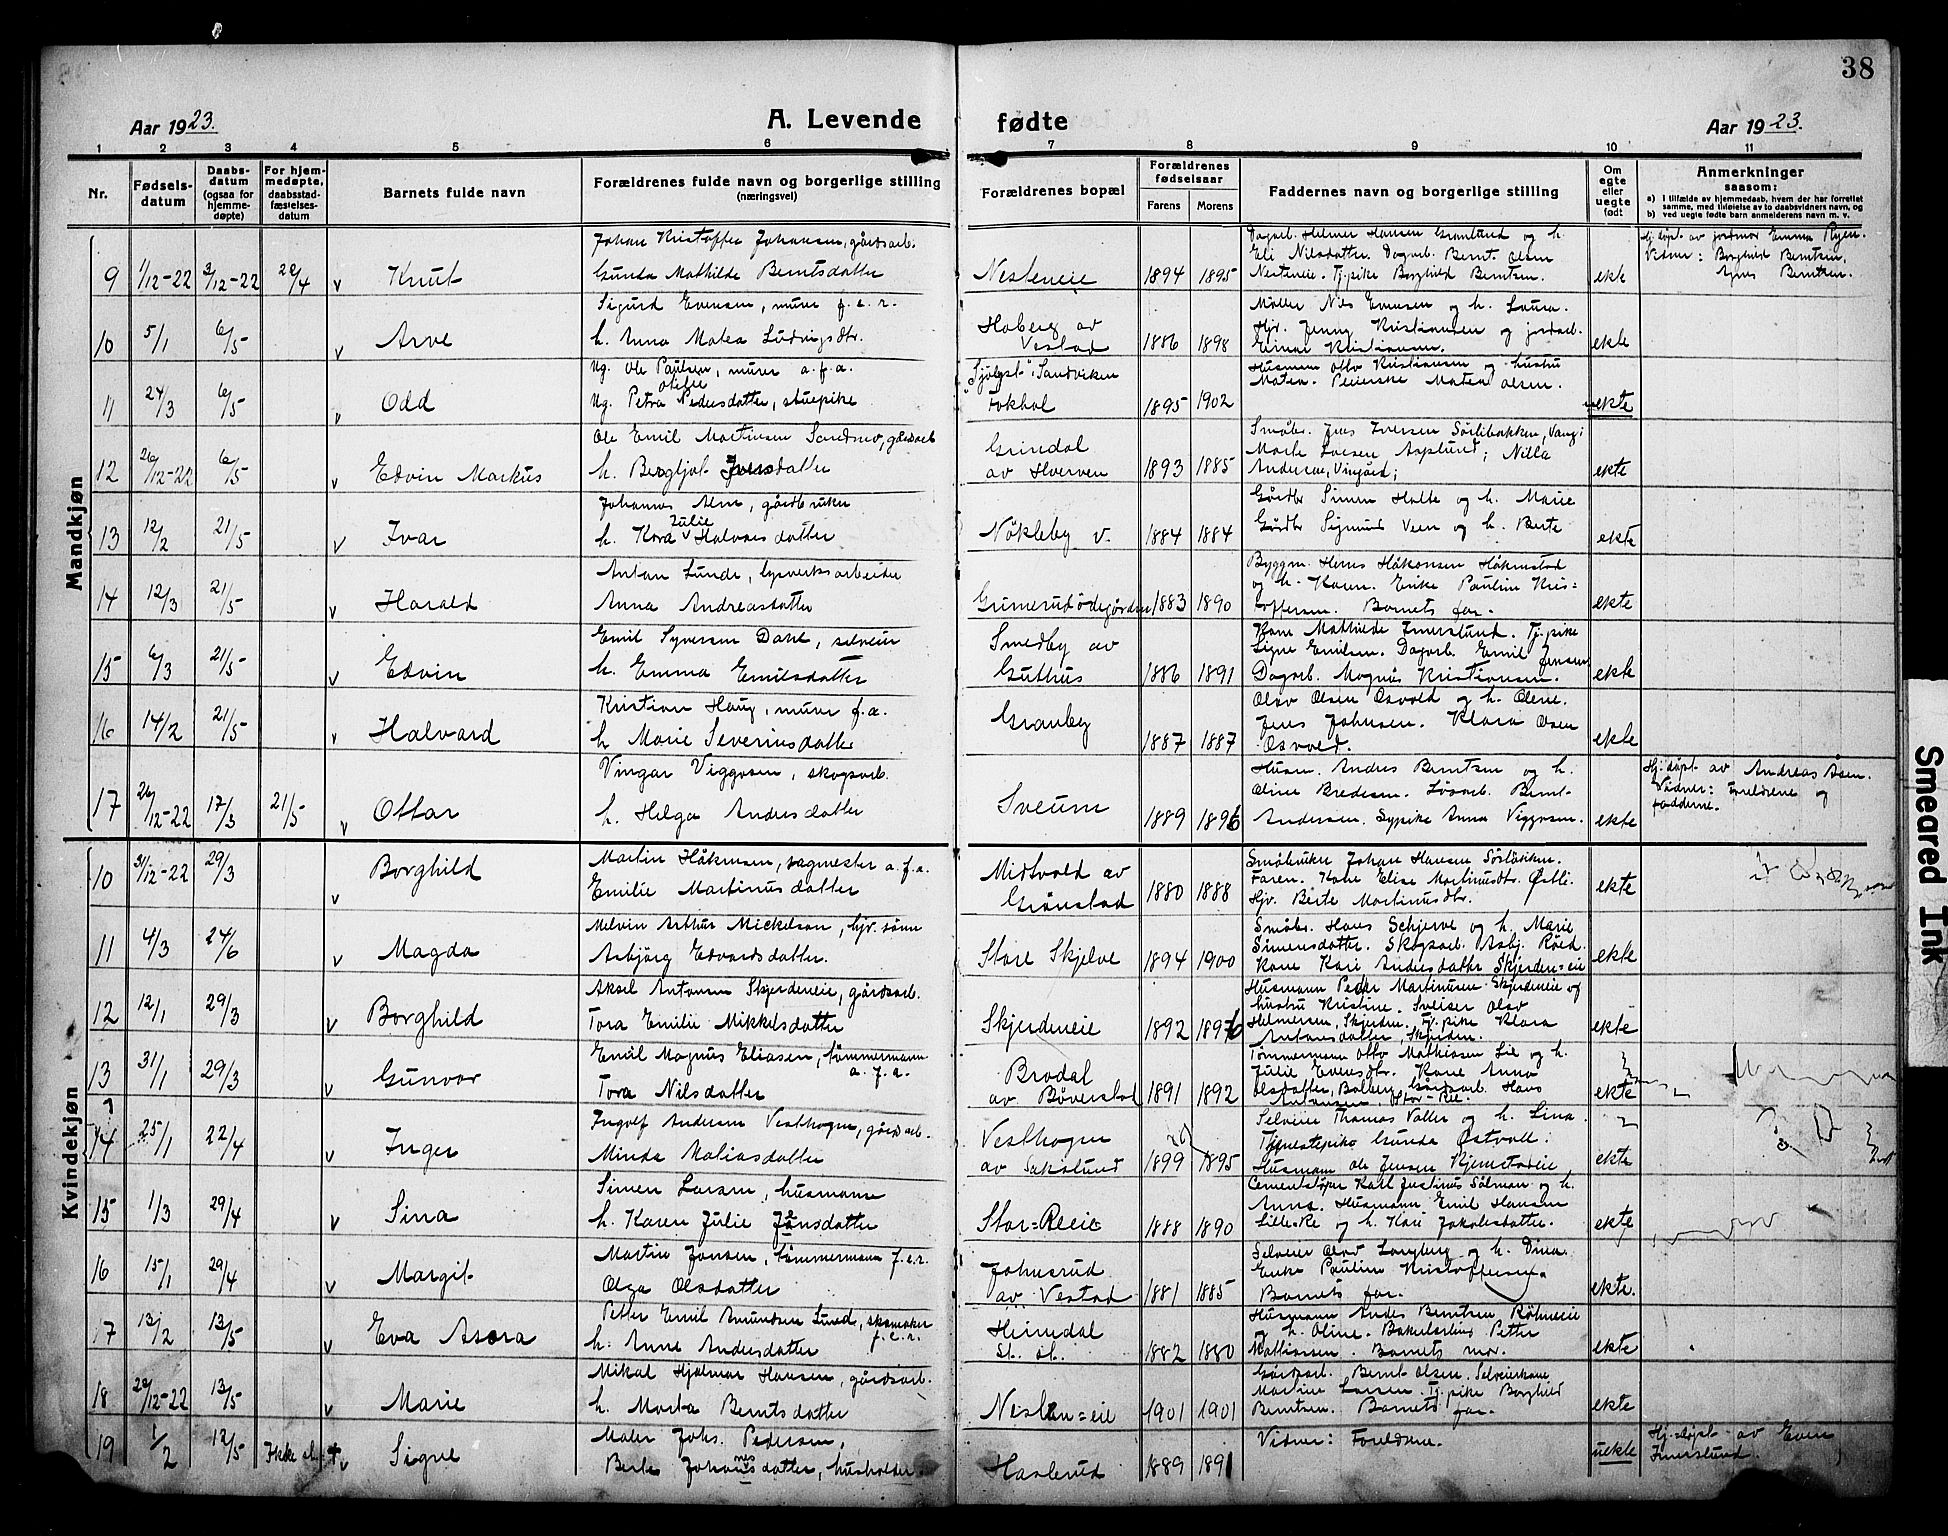 38
Aar 1923.
A. Levende
fødte
Aar 1923.
1 2 3 4 5 6 7 8 9 10 11
Nr.
Fødsels-
datum
Daabs-
datum
(ogsaa for
hjemme-
døpte)
For hjem-
medøpte,
daabsstad-
fæstelses-
datum
Barnets fulde navn
Forældrenes fulde navn og borgerlige stilling
(næringsvei)
Forældrenes bopæl
Forældrenes
fødselsaar
Farens
Morens
Faddernes navn og borgerlige stilling
Om
egte
eller
uegte
født
Anmerkninger
saasom:
a) I tilfælde av hjemmedaab, hvem der har forrettet
samme, med tilføielse av to daabsvidners navn, og
b) ved uegte fødte barn anmelderens navn m. v.
Mandkjøn
9 1/12-22 3/12-22 22/4 v Knut
Johan Kristoffer Johansen, gårdsarb.
Gunda Mathilde Berntsdatter
Nesteneie 1894 1895
Dagarb. Helmer Hansen Granlund og h.
Eli Nilsdatter. Dagarb. Bernt Olsen
Nesteneie. Tj.pike Borghild Berntsen.
ekte
Hj.døpt av jordmor Emma Ryen.
Vidner: Borghild Berntsen,
Agnes Berntsen.
10 5/1 6/5 v Arve
Sigurd Evensen, murer f.a.r.
h. Anna Matea Ludvigsdtr.
Hoberg av
Vestad
1886 1898
Møller Nils Evensen og h. Laura.
Hjv. Jenny Kristiansen og jordarb.
Einar Kristiansen.
ekte
11 24/3 6/5 v Odd
Ug. Ole Paulsen, murer a.f.a.
Ug. Petra Pedersdatter, stuepike
"Sjølyst" i Sandviken
Fokhol
1895 1902
Husmann Otto Kristiansen og hustru
Matea. Peierske Matea Olsen.
uekte
12 26/12-22 6/5 v Edvin Markus
Ole Emil Martinsen Sandmo, gårdsarb
h. Bergljot Iversdatter
Grindal
av Hverven
1893 1885
Småbr. Jens Iversen Sørlibakken, Vang;
Marte Larsen Asplund; Nilla
Andersen, Vingård;
ekte
13 12/2 21/5 v Ivar
Johannes Alm, gårdbruker
h. Kora Julie Halvorsdatter
Nøkleby v. 1884 1884
Gårdbr Simen Holte og h. Marie
Gårdbr Sigmund Veen og h. Berte
ekte
14 12/3 21/5 v Harald
Anton Lunde, lysverksarbeider
Anna Andreasdatter
Grimerudødegården 1883 1890
Byggm. Hans Håkonsen Håkenstad
og h. Karen. Enke Pauline Kris-
toffersen. Barnets far.
ekte
15 6/3 21/5 v Edvin
Emil Syversen Dahl, selveier
h. Emma Emilsdatter
Smedby av
Guthus
1886 1891
Kone Mathilde Imerslund. Tj.pike
Signe Emilsen. Dagarb. Emil Jensen
Dagarb. Magnus Kristiansen.
ekte
16 14/2 21/5 v Halvard
Kristian Haug, murer f.a.
h Marie Severinsdatter
Granby 1887 1887
Olav Olsen Osvold og h. Olene.
Jens Johnsen. Klara Olsen
Osvold.
ekte
17 26/12-22 17/3 21/5 v Ottar
Vingar Viggosen, skogsarb.
h. Helga Andersdatter
Sveum 1889 1896
Husm. Andres Berntsen og h.
Oline Bredesen. Løsarb. Bernt
Andersen. Sypike Anna Viggosen.
ekte
Hj.døpt av Andreas Åsen.
Vidner: Foreldrene og
fadderne.
Kvindekjøn
10 31/12-22 29/3 v Borghild
Martin Håkensen, sagmester a.f.a.
Emilie Martinusdatter
Midtvold av
Grønstad
1880 1888
Småbruker Johan Hansen Sørløkken.
Faren. Kone Elise Martinusdtr. Østli.
Hjv. Berte Martinusdtr.
ekte
11 4/3 24/6 v Magda
Melvin Arthur Mickelson, hjv. sønn
Asbjørg Edvardsdatter.
Store Skjelve 1894 1900
Småbr. Hans Schjerve og h. Marie
Simensdatter. Skogsarb. Asbj. Røed.
Kone Kari Andersdatter Skjerden=eie
ekte
12 12/1 29/3 v Borghild
Aksel Antonsen Skjerdeneie, gårdsarb.
Tora Emilie Mikkelsdatter
Skjerdeneie 1892 1896
Husmann Peder Martinusen Skjerdeneie og
hustru Kristine. Sveiser Olav
Helmersen, Skjerden. Tj.pike Klara
Antonsdatter, Skjerden.
ekte
13 31/1 29/3 v Gunvor
Emil Magnus Eliasen, tømmermann
a.f.a.
Tora Nilsdatter
Brodal
av Bøverstad
1891 1892
Tømmermann Otto Mathiasen Lie og h.
Julie Evensdtr. Kone Anna
Olsdatter, Balberg. Gårdsarb. Hans
Antonsen, Stor-Ree.
ekte
14 25/1 22/4 v Inger
Ingolf Andersen Vesthagen, gårdsarb.
Minda Matiasdatter
Vesthagen
av Sakslund
1899 1895
Selveier Thomas Valler og h. Lina.
Tjenestepike Gunda Østvoll.
Husmann Ole Jensen Kjemstadeie,
ekte
15 1/3 29/4 v Sina
Simen Larsen, husmann
h. Karen Julie Jensdatter
Stor=Reeie 1888 1890
Cementstøper Karl Justinus Sålman og h.
Anna. Husmann Emil Hansen
Lille-Re og h. Kari Jakobsdatter.
ekte
16 15/1 29/4 v Margit
Martin Jonsen, tømmermann f.a.r.
Olga Olsdatter
Johnsrud
av Vestad
1881 1885
Selveier Olav Langberg og h. Dina.
Enke Pauline Kristoffersen.
Barnets far.
ekte.
17 13/2 13/5 v Eva Asora
Petter Emil Amundsen Lund, skomaker
f.a.r.
h. Anne Andersdatter
Heimdal
St. al.
1882 1880
Husmann Andes Berntsen Røhneeie
og h. Oline. Bakerlærling Petter
Mathissen. Barnets mor.
ekte
18 29/12-22 13/5 v Marie
Mikal Hjalmar Hansen, gårdsarb.
h. Marta Berntsdatter
Nesten=eie 1901 1901
Gårdsarb. Bernt Olsen. Selveierkone
Martine Larsen. Tj.pike Borghild
Berntsen. Barnets far.
ekte
19 1/2 12/5 Ikke st. + v Signe
Maler Johs. Pedersen,
Berte Johannesdatter, husholder.
Haslerud 1889 1891
Vidner: Foreldrene.
uekte
Hj.døpt av Even
Imerslund.
Smeared Ink